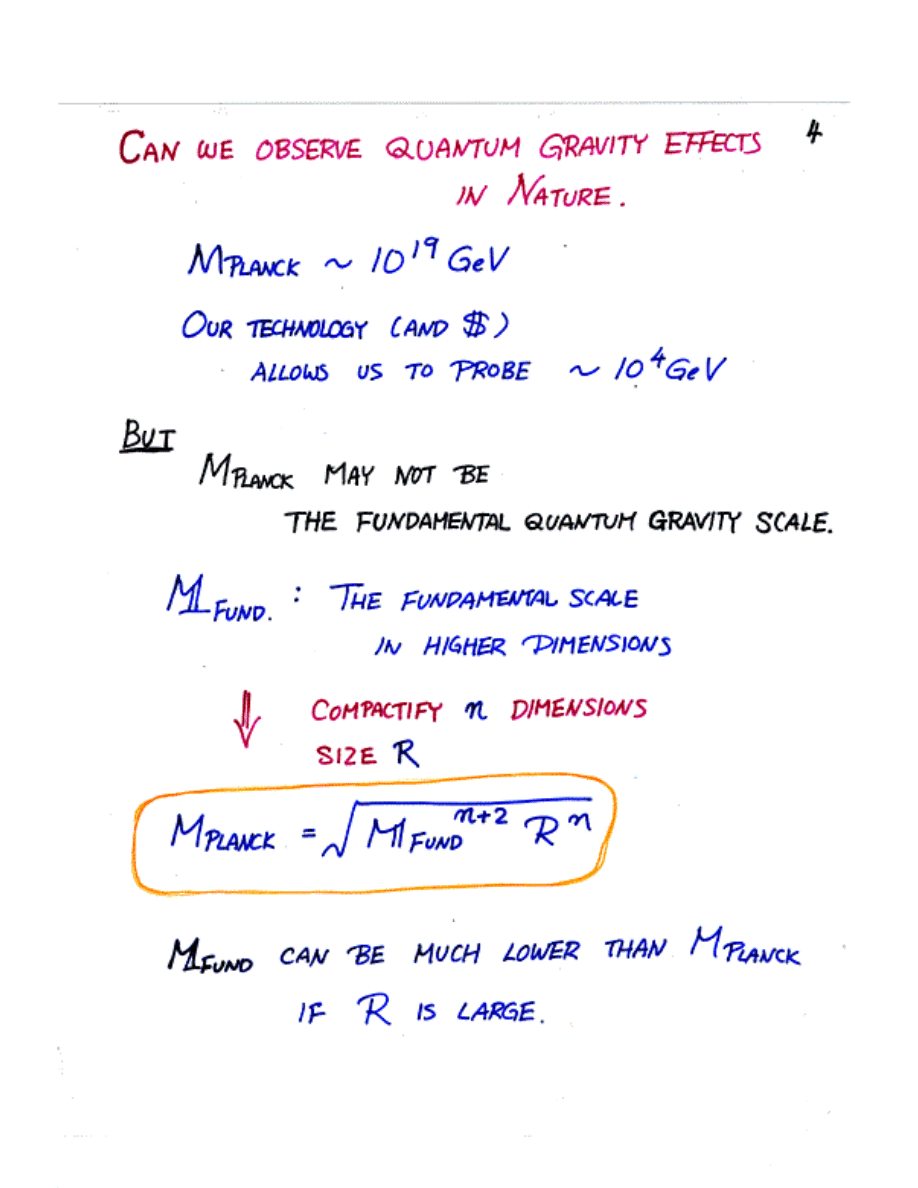 CAN WE OBSERVE QUANTUM GRAVITY EFFECTS 4
IN NATURE.
MPLANCK ~ 10^19 GeV
OUR TECHNOLOGY (AND $)
ALLOWS US TO PROBE ~ 10^4 GeV
BUT
MPLANCK MAY NOT BE
THE FUNDAMENTAL QUANTUM GRAVITY SCALE.
MFUND. : THE FUNDAMENTAL SCALE
IN HIGHER DIMENSIONS
⇓ COMPACTIFY n DIMENSIONS
SIZE R
MPLANCK = √(MFUND^(n+2) R^n)
MFUND CAN BE MUCH LOWER THAN MPLANCK
IF R IS LARGE.